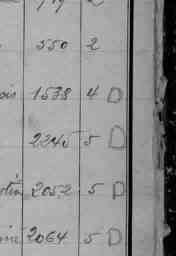 550 2
1538 4 D
2245 5 D
2052 5 D
2064 5 D